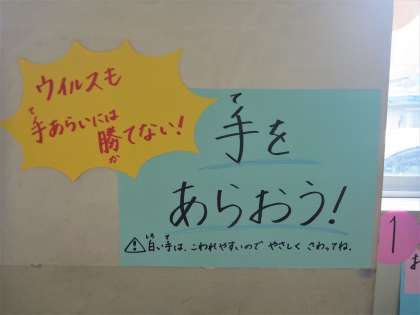 ウイルスも
手あらいには
勝てない！
手を
あらおう！
⚠白い手は、こわれやすいので やさしく さわってね。
1
お